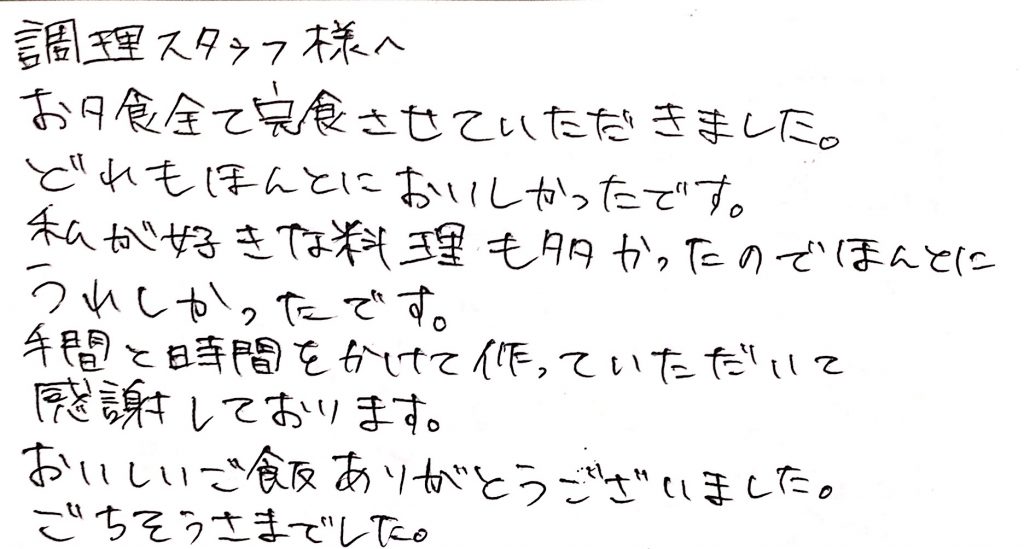 調理スタッフ様へ
お夕食全て完食させていただきました。
どれもほんとにおいしかったです。
私が好きな料理も多かったのでほんとに
うれしかったです。
手間と時間をかけて作っていただいて
感謝しております。
おいしいご飯ありがとうございました。
ごちそうさまでした。